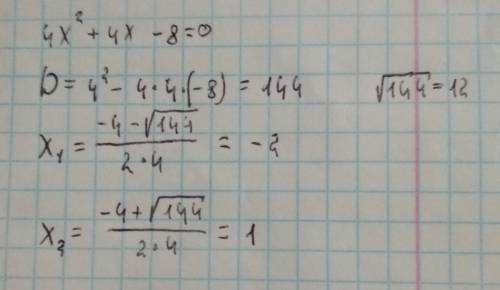 4x² + 4x - 8 = 0
D = 4² - 4·4·(-8) = 144    √144 = 12
x₁ = (-4 - √144)/(2·4) = -2
x₂ = (-4 + √144)/(2·4) = 1